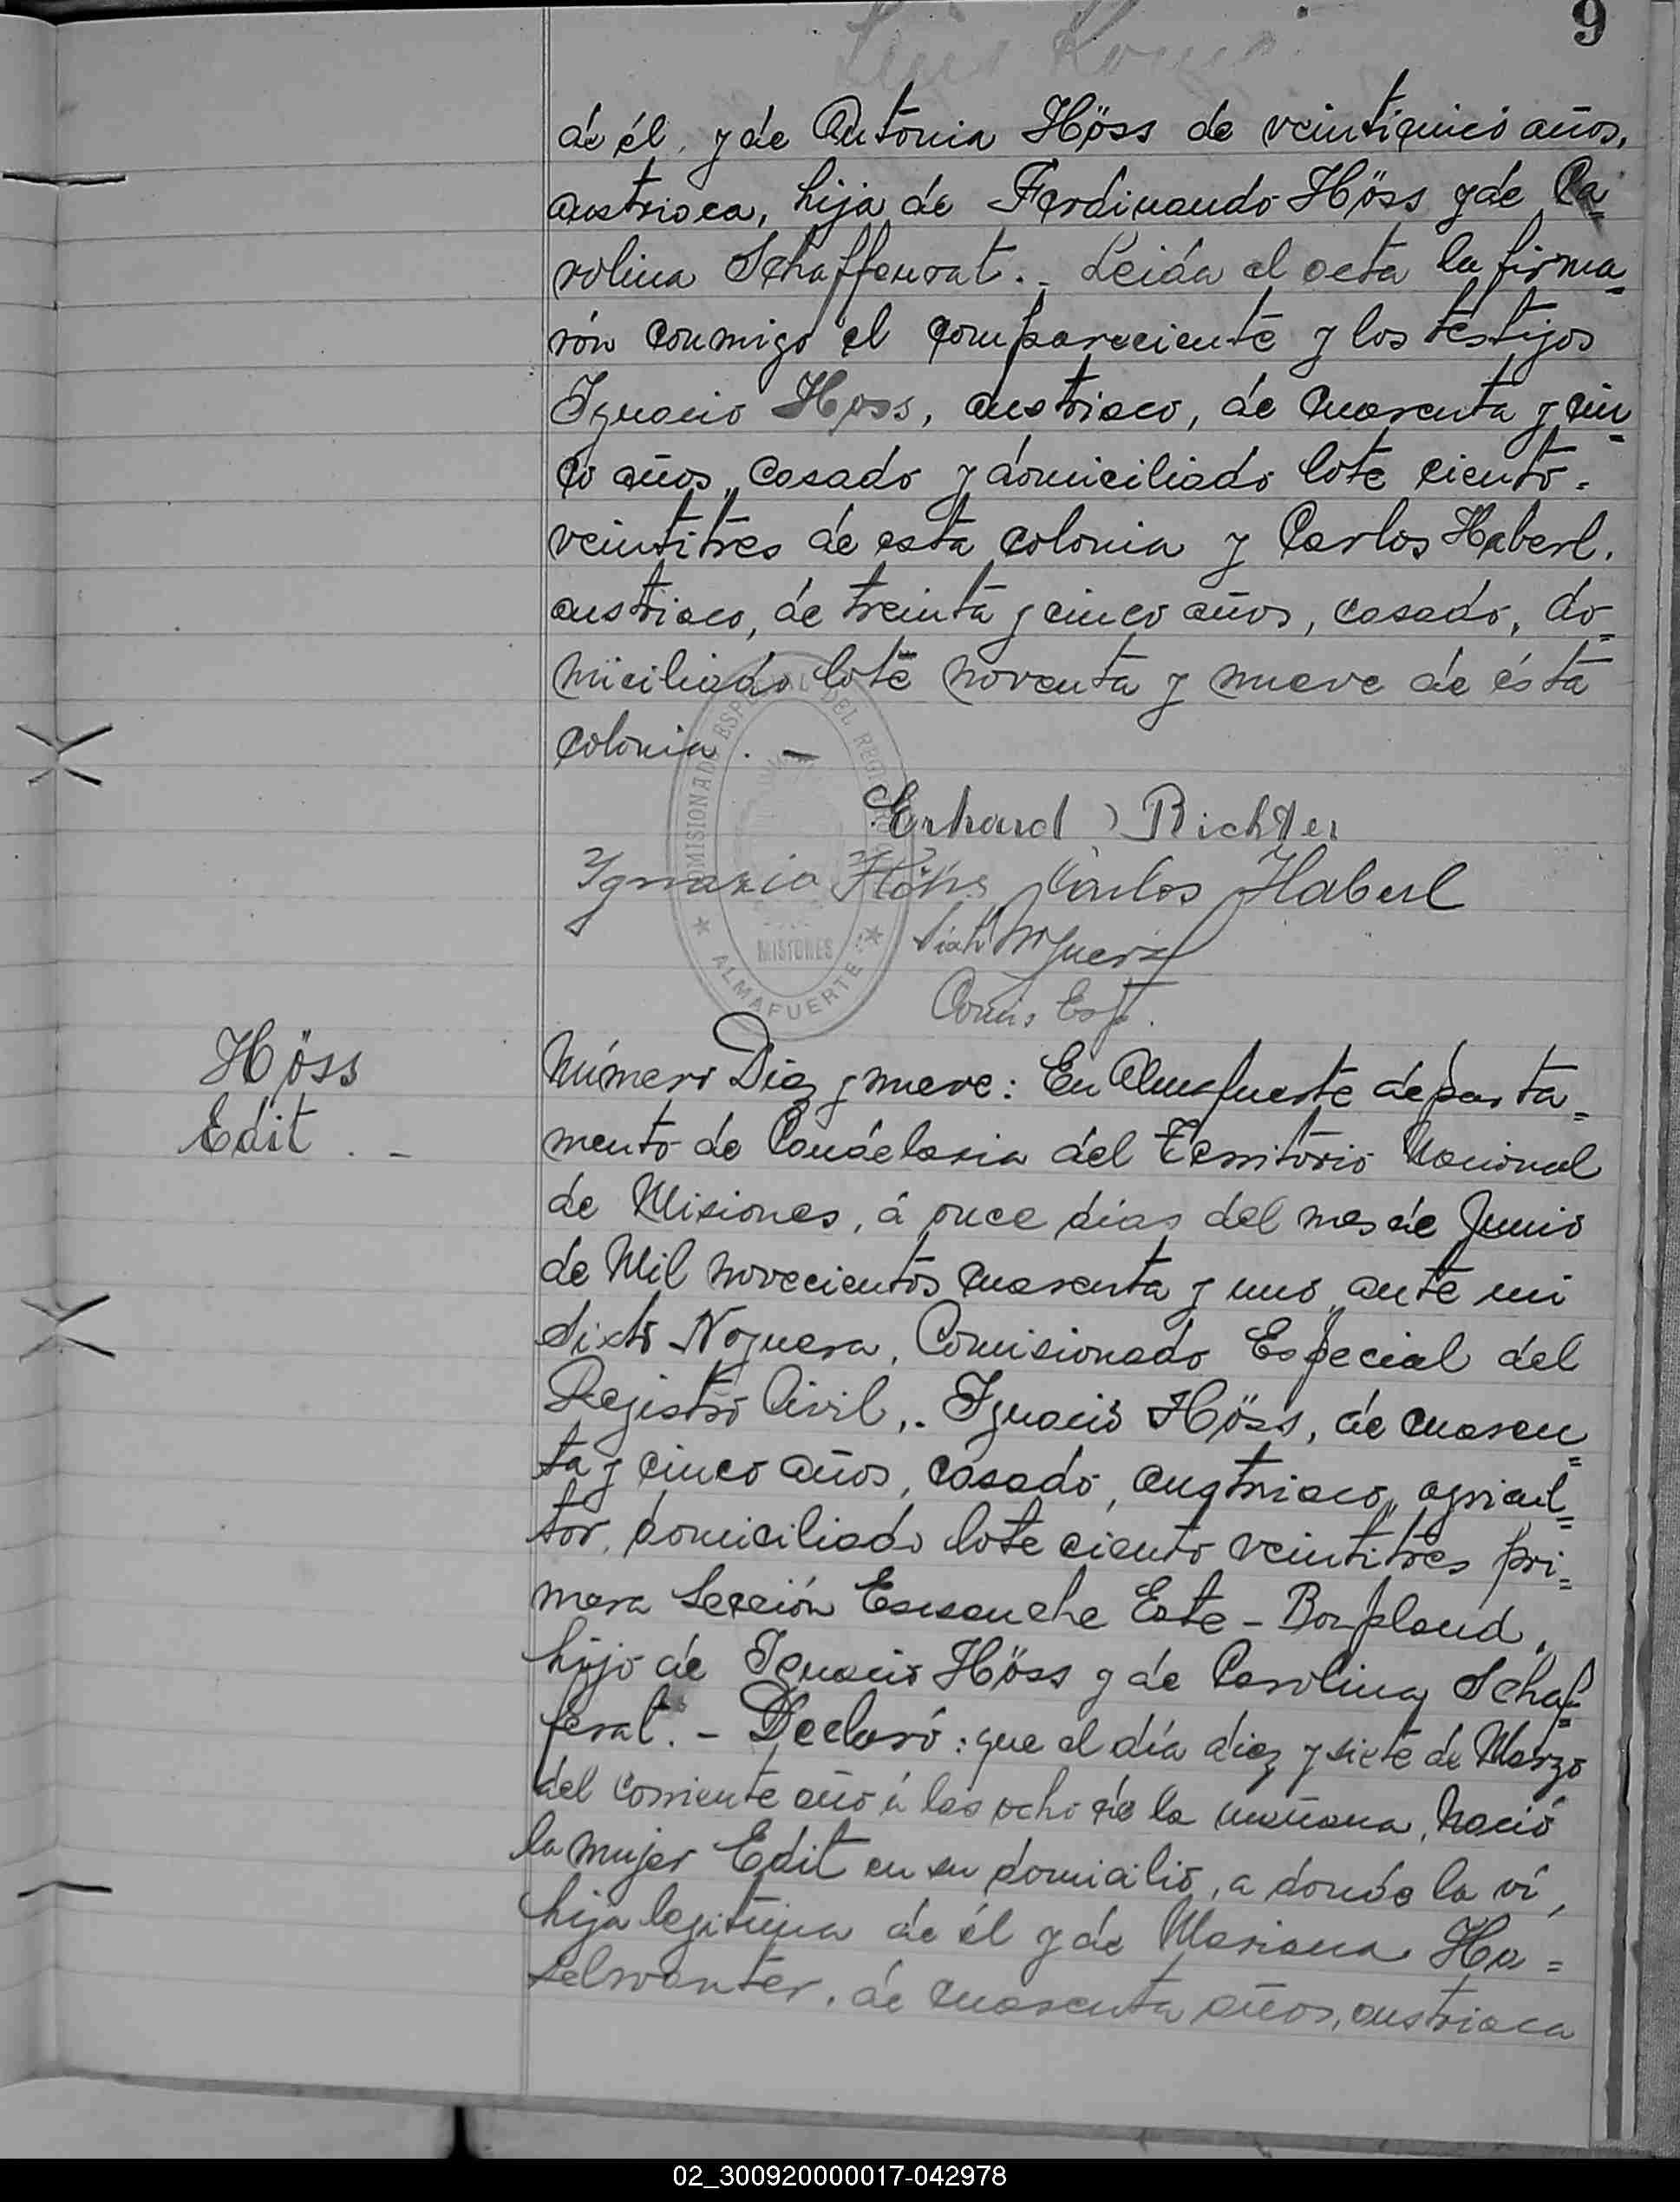 9
Luis
de él, y de Antonia Höss de veinticinco años,
austriaca, hija de Ferdinando Höss y de Ca=
rolina Schaffenrat. - Leida el acta la firma=
rón conmigo el compareciente y los testigos
Ignacio Höss, austriaco, de cuarenta y cin=
co años, casado y domiciliado lote ciento =
veintitres de esta colonia y Carlos Haberl,
austriaco, de treinta y cinco años, casado, do=
miciliado lote noventa y nueve de ésta
colonia. -
COMISIONADO ESPECIAL DEL REGISTRO CIVIL
MISIONES
★ ALMAFUERTE ★
Erhard Richter
Ygnazio Höss Carlos Haberl
Sixto Noguera
Comis. Esp.
Höss
Edit . -
Número Diez y nueve: En Almafuerte departa=
mento de Candelaria del Territorio Nacional
de Misiones, á once dias del mes de Junio
de Mil novecientos cuarenta y uno, ante mi
Sixto Noguera, Comisionado Especial del
Registro Civil,. Ignacio Höss, de cuaren=
ta y cinco años, casado, austriaco, agricul=
tor, domiciliado lote ciento veintitres pri=
mera Sección Ensanche Este - Bonpland,
hijo de Ignacio Höss y de Carolina Schaf=
ferat. - Declaró: que el día diez y siete de Marzo
del corriente año á las ocho de la mañana, nació
la mujer Edit en su domicilio, a donde la ví,
hija legitima de él y de Mariana Ha=
selwanter, de cuarenta años, austriaca
02_300920000017-042978